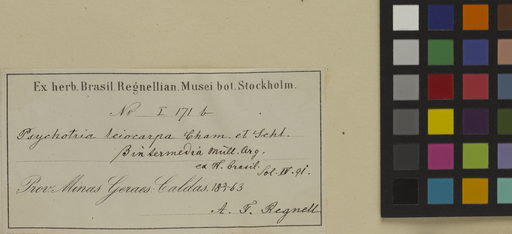 Ex herb. Brasil. Regnellian. Musei bot. Stockholm.
No I 171 b
Psychotria leiocarpa Cham. et Schl.
β intermedia Müll. Arg.
ex H. Brasil.
Prov. Minas Geraes. Caldas. 18 63
A. F. Regnell